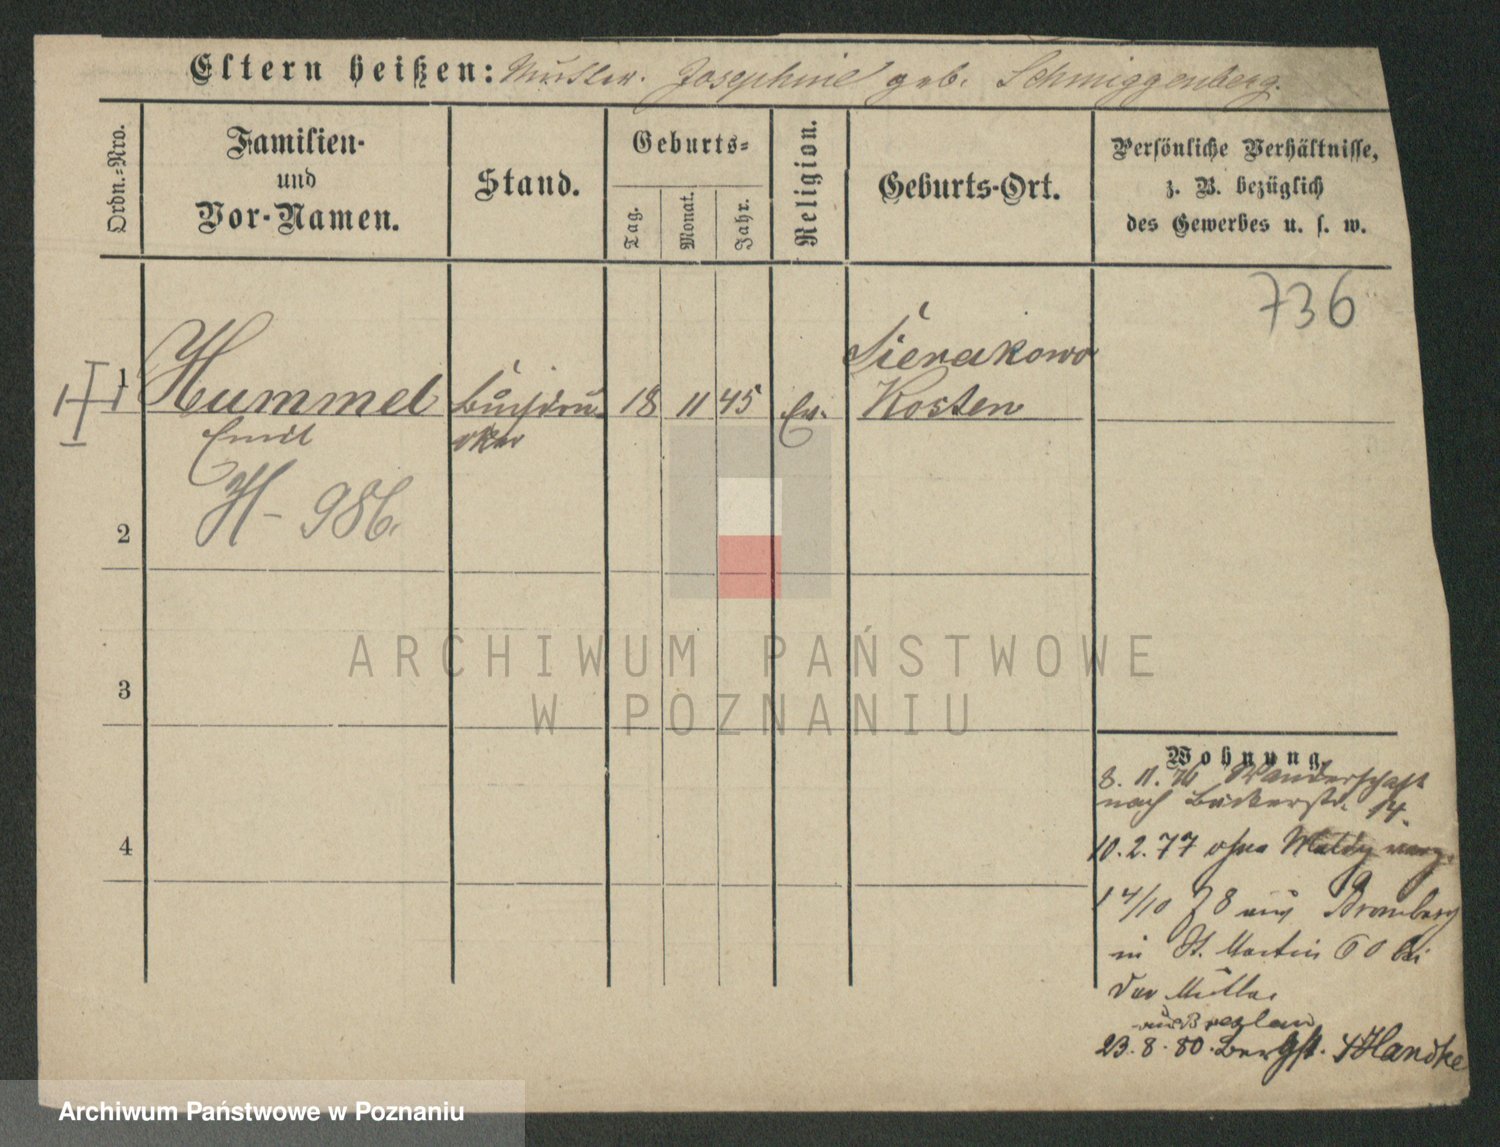 Eltern heißen: Mutter. Josephine geb. Schmiggenberg.
Ordn.-Nro.
Familien-
und
Vor-Namen.
Stand.
Geburts-
Tag.
Monat.
Jahr.
Religion.
Geburts-Ort.
Persönliche Verhältnisse,
z. B. bezüglich
des Gewerbes u. s. w.
736
1
Hummel
Emil
Buchdru-
cker
18
11
45
Ev.
Sierakowo
Kosten
H - 986.
2
3
4
ARCHIWUM PAŃSTWOWE
W POZNANIU
Wohnung.
8. 11. 76 Wanderschaft
nach Bäckerstr. 14.
10. 2. 77 ohne Meldg
14/10 78 aus Bromberg
in St. Martin 60 bei
der Mutter
aus Breslau
23. 8. 80. Bergst. 4 Handke
Archiwum Państwowe w Poznaniu